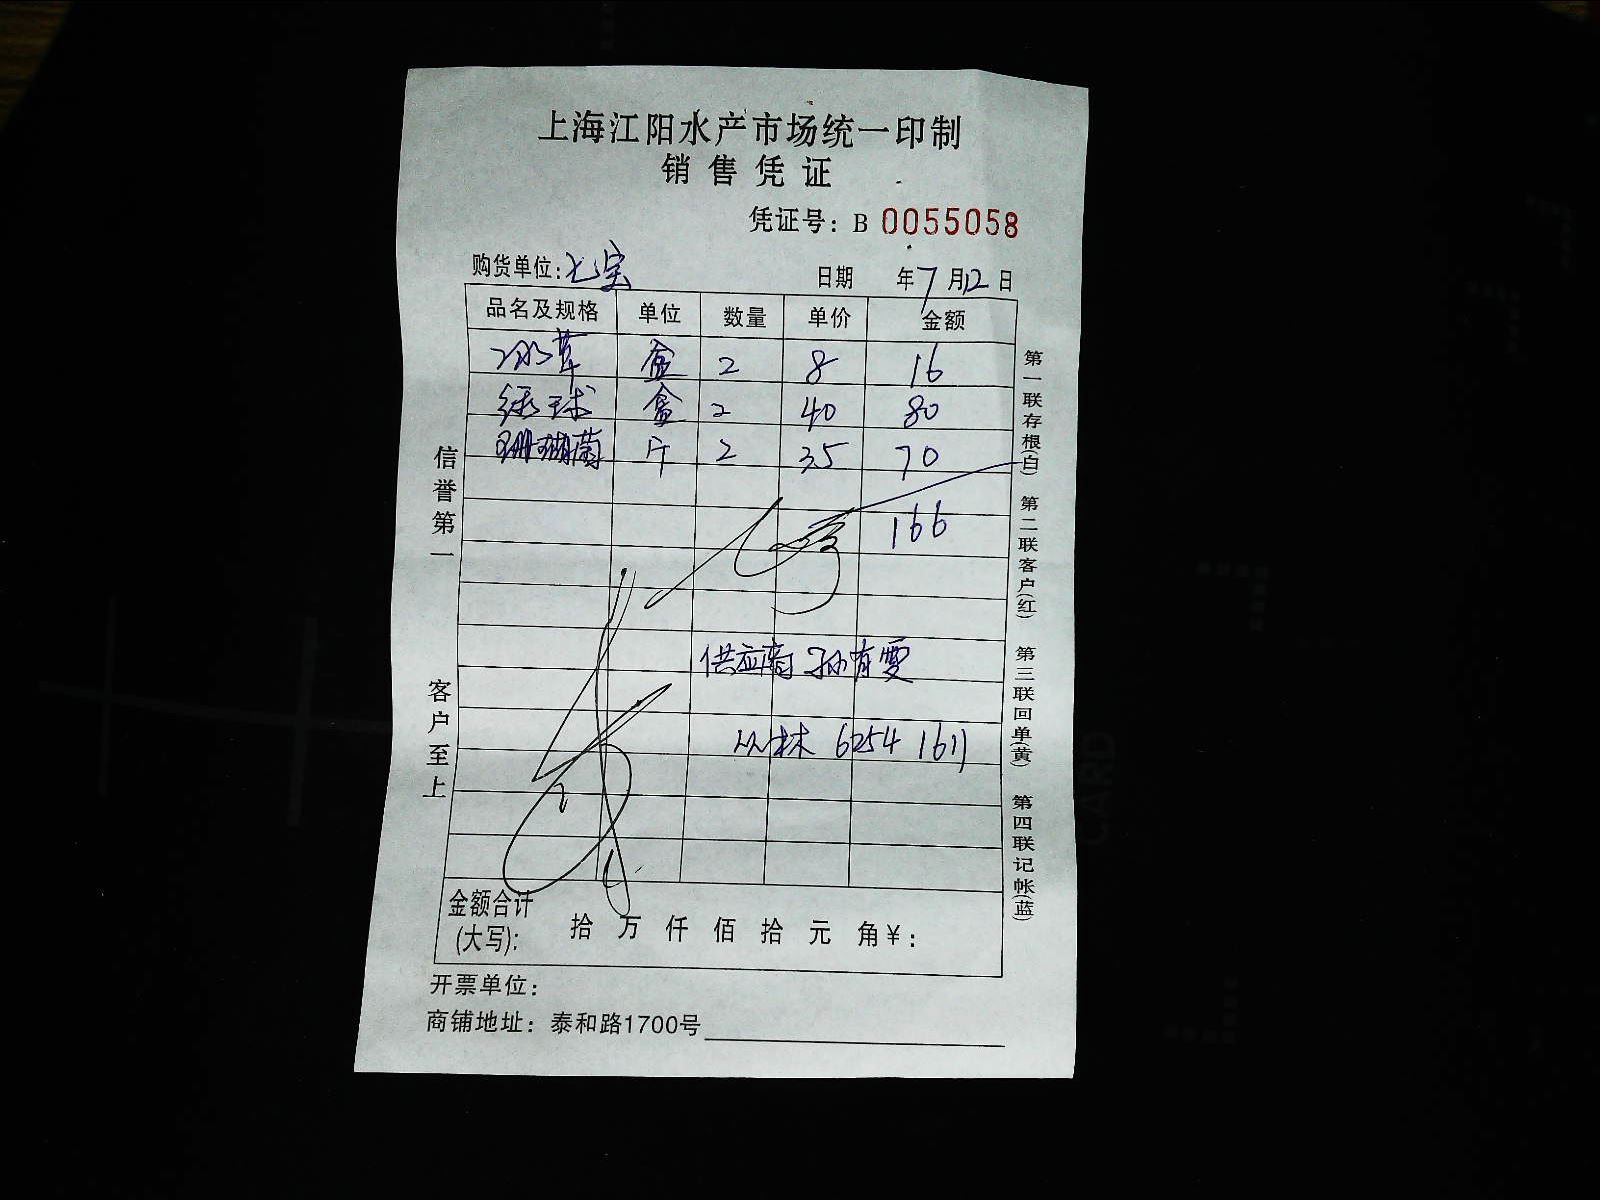 上海江阳水产市场统一印制
销售凭证
凭证号：B 0055058
购货单位：七宝 日期 年7月12日
品名及规格 单位 数量 单价 金额
冰草 盒 2 8 16
绿球 盒 2 40 80
珊瑚菌 斤 2 35 70
166
供应商 孙有雯
从林 6254 1611
金额合计(大写)： 拾 万 仟 佰 拾 元 角 ¥：
开票单位：
商铺地址：泰和路1700号
信誉第一 客户至上
第一联存根(白) 第二联客户(红) 第三联回单(黄) 第四联记帐(蓝)